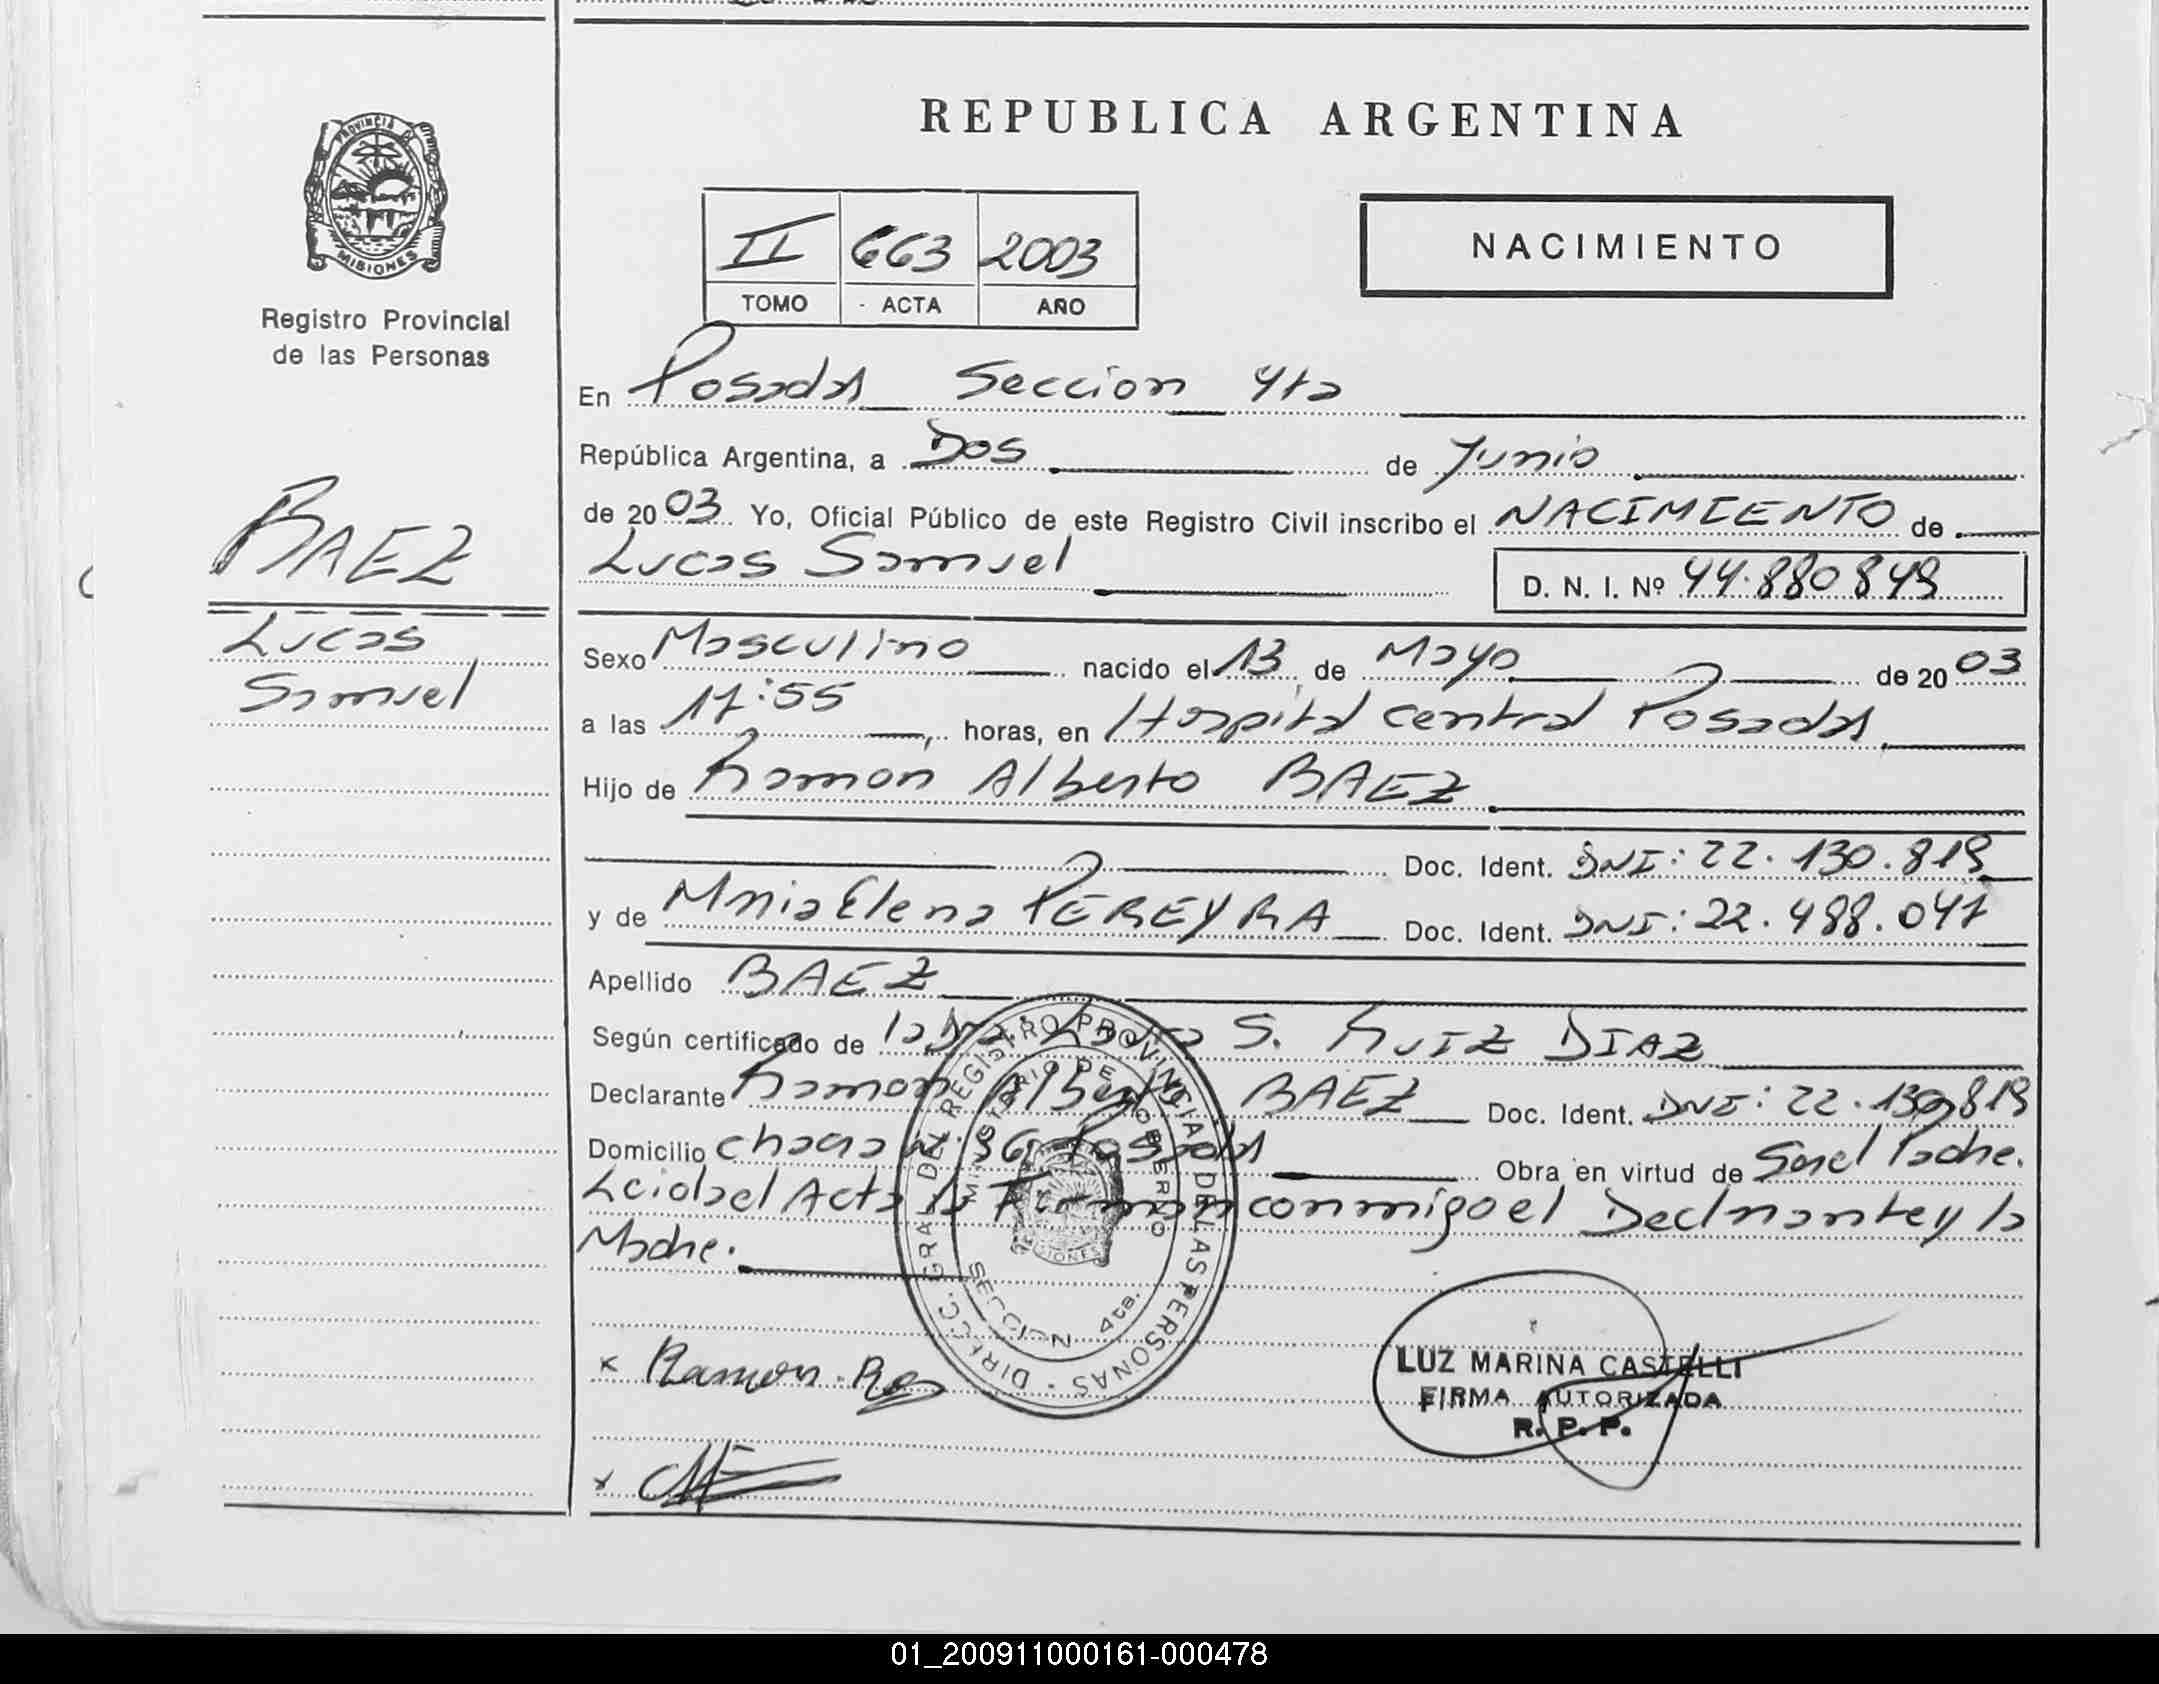 REPUBLICA ARGENTINA
PROVINCIA DE
MISIONES
Registro Provincial
de las Personas
II 663 2003
TOMO ACTA AÑO
NACIMIENTO
En Posadas Seccion 4ta
República Argentina, a Dos de Junio
de 2003 Yo, Oficial Público de este Registro Civil inscribo el NACIMIENTO de
Lucas Samuel
D. N. I. Nº 44.880849
BAEZ
Lucas
Samuel
Sexo Masculino nacido el 13 de Mayo de 2003
a las 17:55 horas, en Hospital central Posadas
Hijo de Ramon Alberto BAEZ
Doc. Ident. DNI: 22.130.819
y de Maria Elena PEREYRA Doc. Ident. DNI: 22.488.047
Apellido BAEZ
Según certificado de la Dra. S. RUIZ DIAZ
Declarante Ramon Alberto BAEZ Doc. Ident. DNI: 22.130.819
Domicilio chacra Posadas Obra en virtud de Ser el Padre.
Leida el Acta la Firman conmigo el Declarante y la
Madre.
DIRECC. GRAL. DEL REGISTRO PROVINCIAL DE LAS PERSONAS
MINISTERIO DE GOBIERNO
MISIONES
SECCION 4ta.
x Ramon
LUZ MARINA CASTELLI
FIRMA AUTORIZADA
R. P. P.
x
01_200911000161-000478